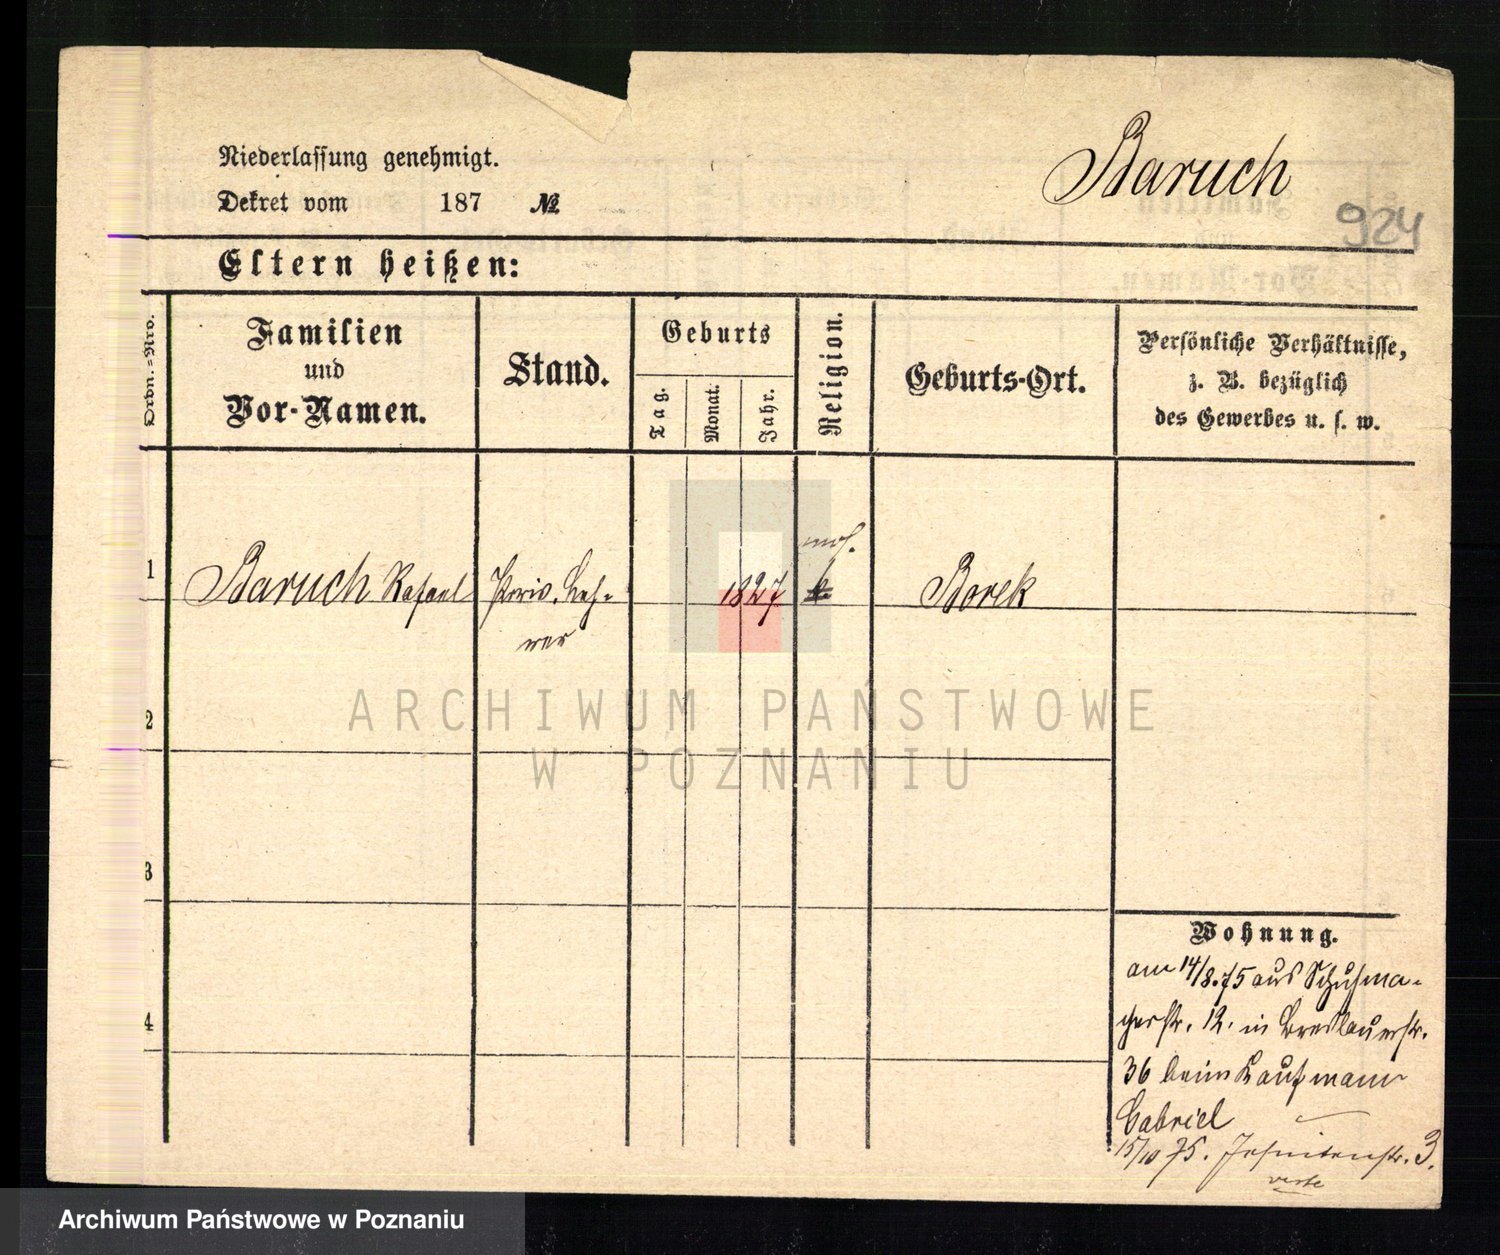 Baruch
924
Niederlassung genehmigt.
Dekret vom 187 №
Eltern heißen:
Ordn.-Nro.
Familien
und
Vor-Namen.
Stand.
Geburts
Tag.
Monat.
Jahr.
Religion.
Geburts-Ort.
Persönliche Verhältnisse,
z. B. bezüglich
des Gewerbes u. s. w.
mos.
1 Baruch Rafael Priv. Leh- 1827 k Borek
rer
2
3
4
ARCHIWUM PAŃSTWOWE
W POZNANIU
Wohnung.
am 14/8.75 aus Schuhma-
cherstr. 12. in Breslauerstr.
36 beim Kaufmann
Gabriel
15/10 75. Jesuitenstr. 3.
verte
Archiwum Państwowe w Poznaniu